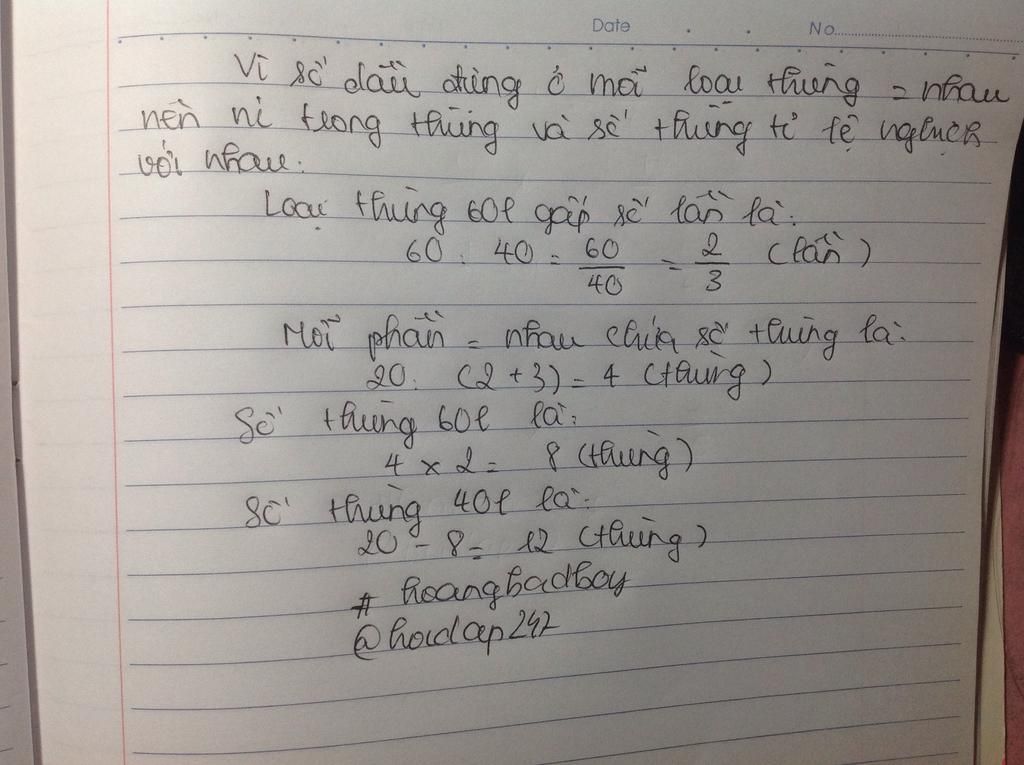 Date No
Vì số dầu đựng ở mỗi loại thùng = nhau
nên nl trong thùng và số thùng tỉ lệ nghịch
với nhau.
Loại thùng 60l gấp số lần là:
60 : 40 = 60/40 = 2/3 (lần)
Mỗi phần = nhau chứa số thùng là:
20 : (2 + 3) = 4 (thùng)
Số thùng 60l là:
4 x 2 = 8 (thùng)
Số thùng 40l là:
20 - 8 = 12 (thùng)
# hoangbadboy
@hoidap247